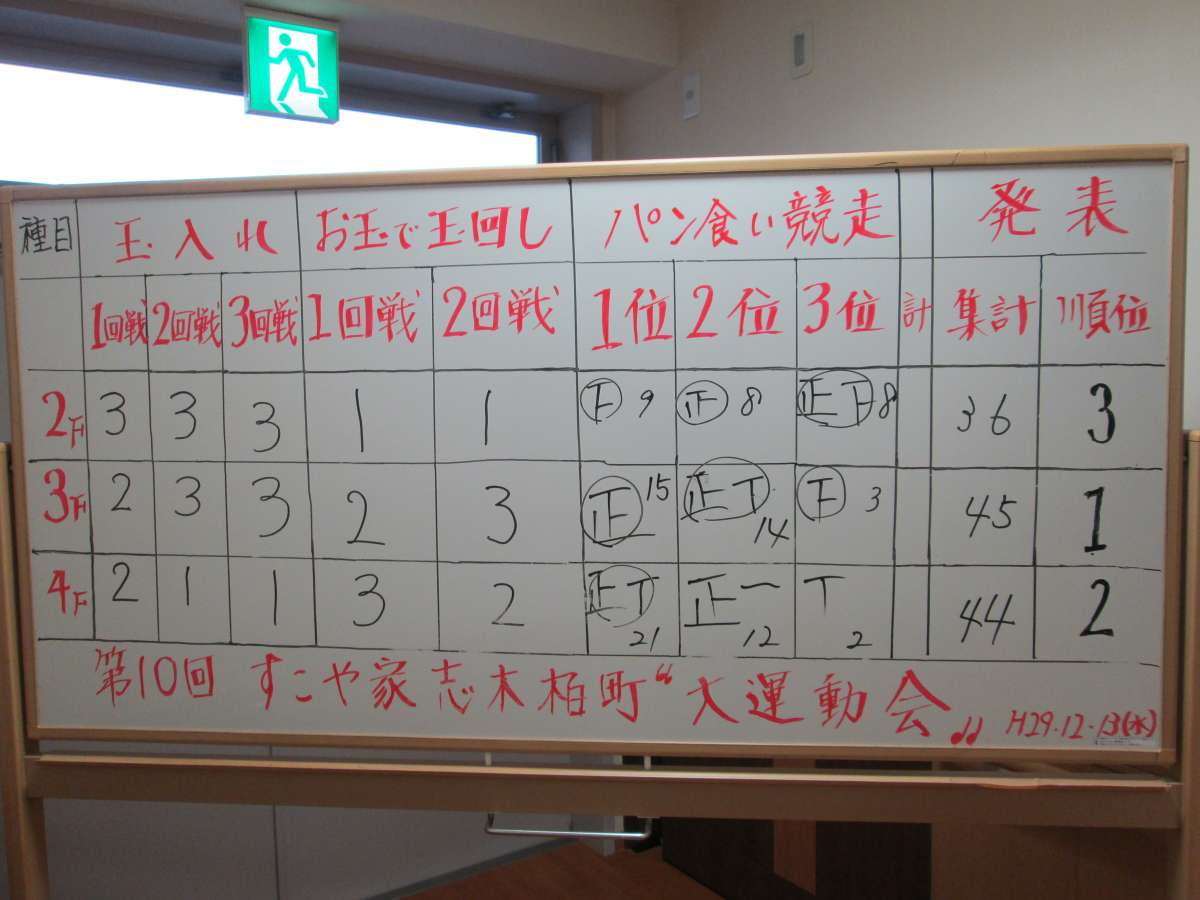 種目 玉入れ お玉で玉回し パン食い競走 発表
1回戦 2回戦 3回戦 1回戦 2回戦 1位 2位 3位 計 集計 順位
2F 3 3 3 1 1 下 9 正 8 正下 8 36 3
3F 2 3 3 2 3 正 15 正丅 14 下 3 45 1
4F 2 1 1 3 2 正丅 21 正一 12 丅 2 44 2
第10回 すこや家志木柏町“大運動会♫ H29.12.13(水)